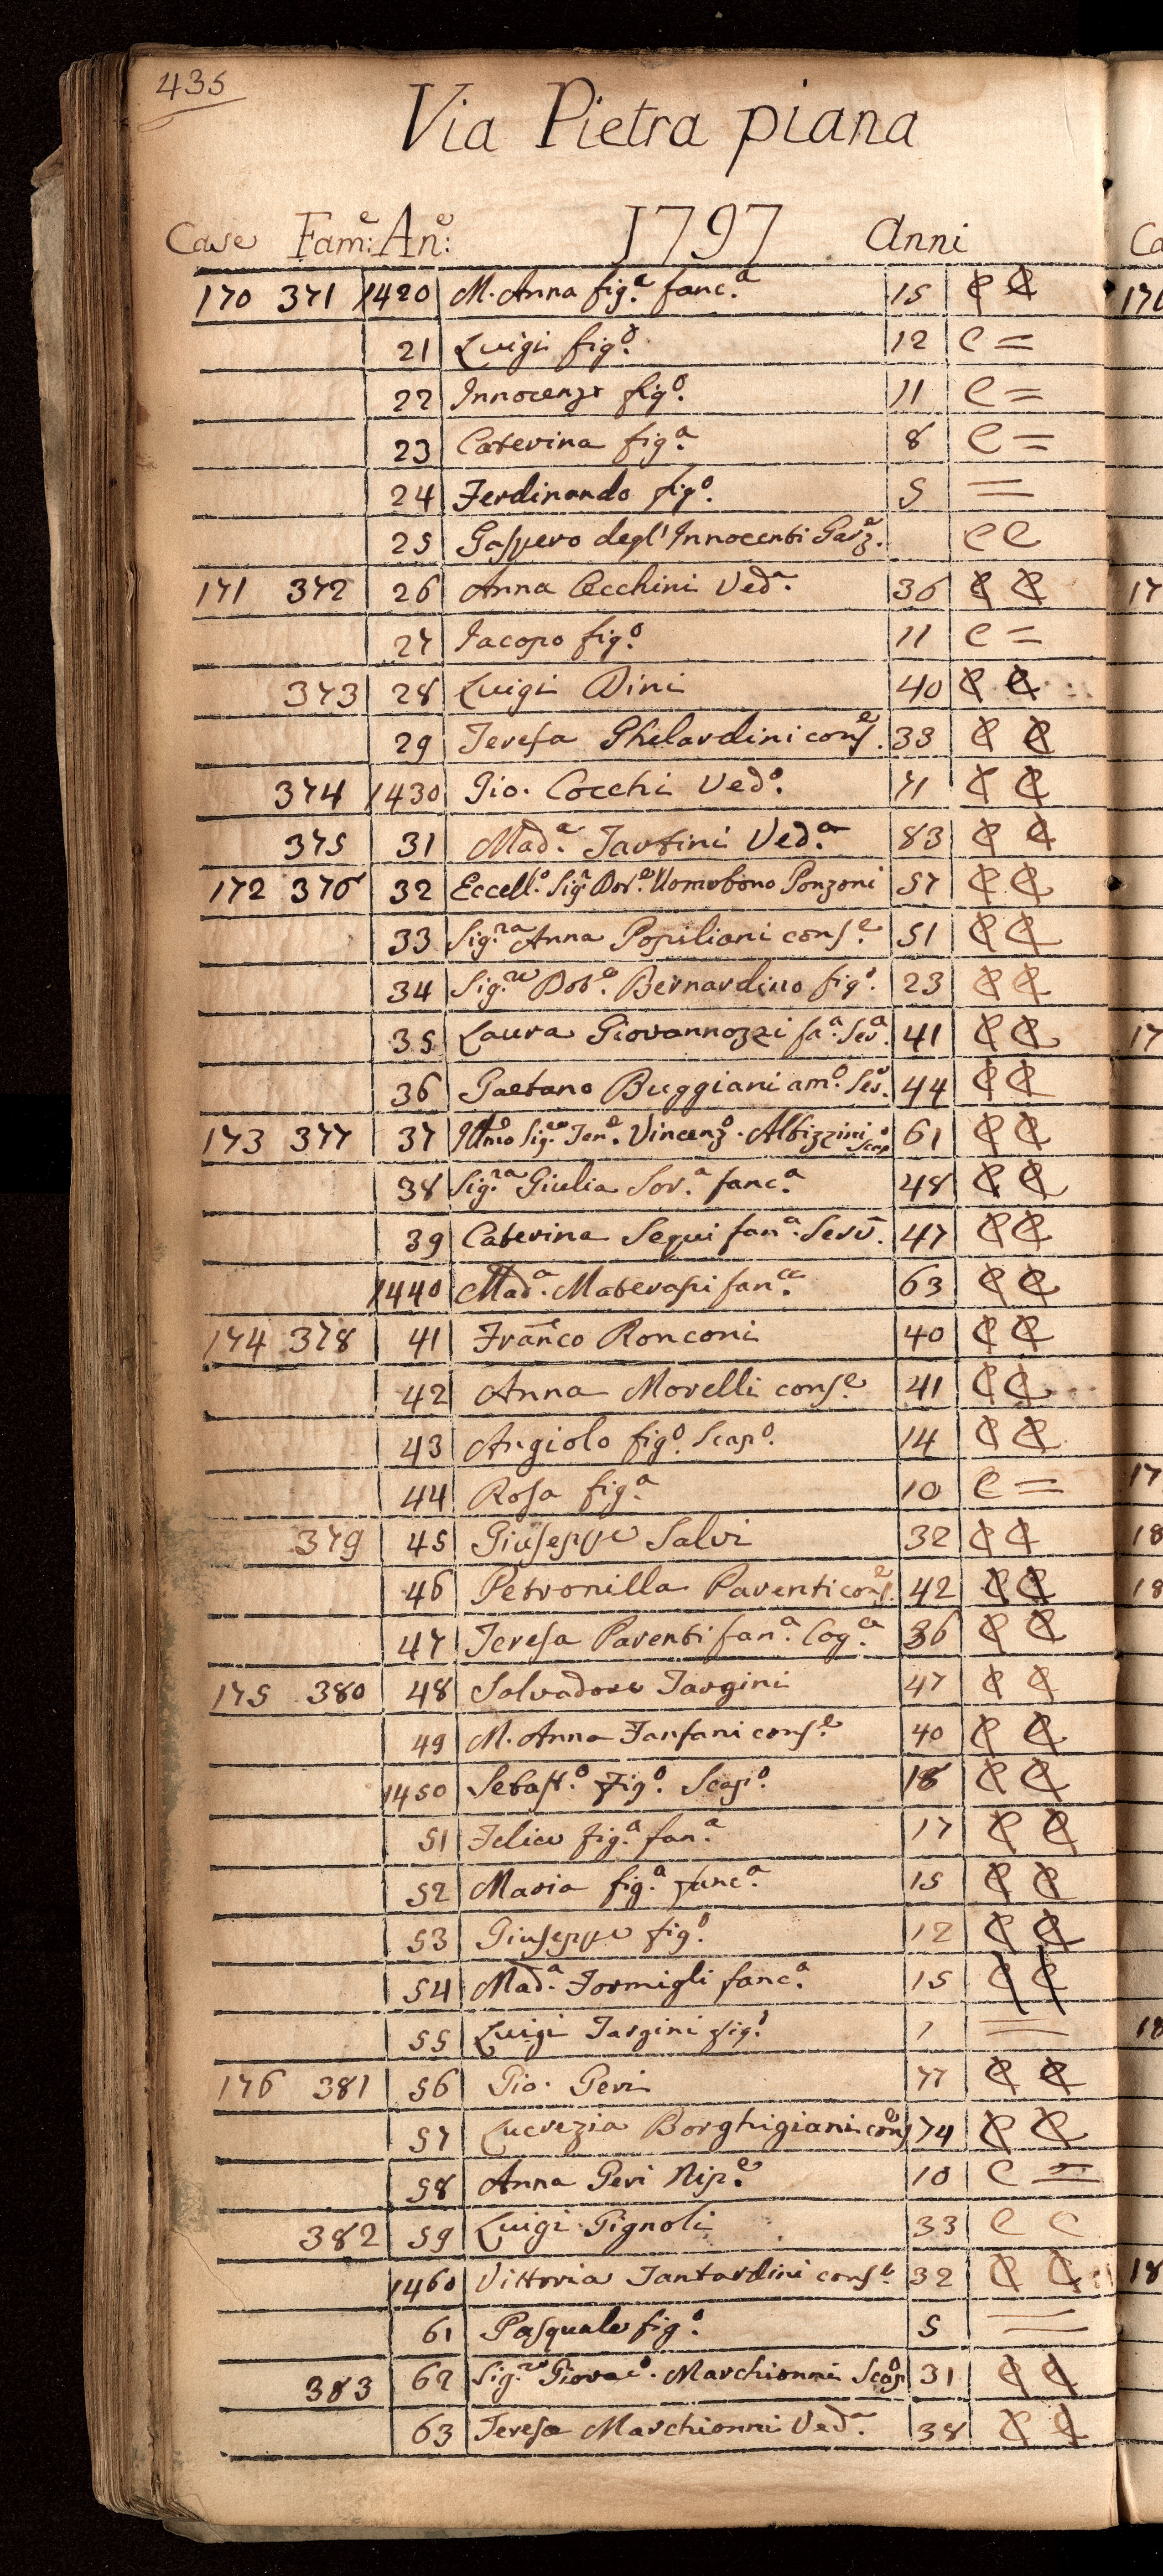 435
Via Pietra piana
Case Fam:e An:e 1797 Anni
170 371 1420 M. Anna fig.a fanc.a 15 C C
21 Luigi fig.o 12 C =
22 Innocenzo fig.o 11 C =
23 Caterina fig.a 8 C =
24 Ferdinando fig.o 5 =
25 Gaspero degl'Innocenti Garz.e C C
171 372 26 Anna Cecchini Ved.a 36 C C
27 Iacopo fig.o 11 C =
373 28 Luigi Dini 40 C C
29 Teresa Ghelardini cons.e 33 C C
374 1430 Gio. Cocchi Ved.o 71 C C
375 31 Mad.a Tartini Ved.a 83 C C
172 376 32 Eccell.o Sig.r Dot.e Uomobono Ponzoni 57 C C
33 Sig.ra Anna Popiliani cons.e 51 C C
34 Sig.re Dot.e Bernardino fig.o 23 C C
35 Laura Giovannozzi fa.a Ser.a 41 C C
36 Gaetano Buggiani am.o Ser.e 44 C C
173 377 37 Illmo Sig.re Ten.e Vincenz.o Albizzini Scap.o 61 C C
38 Sig.ra Giulia Sor.a fanc.a 48 C C
39 Caterina Sequi fan.a Serv. 47 C C
1440 Mad.a Materassi fan.a 63 C C
174 378 41 Franco Ronconi 40 C C
42 Anna Morelli cons.e 41 C C
43 Angiolo fig.o Scap.o 14 C C
44 Rosa fig.a 10 C =
379 45 Giuseppe Salvi 32 C C
46 Petronilla Parenti cons.e 42 C C
47 Teresa Parenti fan.a Cog.a 36 C C
175 380 48 Salvadore Targini 47 C C
49 M. Anna Fanfani cons.e 40 C C
1450 Sebast.o fig.o Scap.o 18 C C
51 Felice fig.a fan.a 17 C C
52 Maria fig.a fanc.a 15 C C
53 Giuseppe fig.o 12 C C
54 Mad.a Formigli fanc.a 15 C C
55 Luigi Targini fig.o 1 =
176 381 56 Gio. Geri 77 C C
57 Lucrezia Borghigiani cons.e 74 C C
58 Anna Geri Nip.e 10 C =
382 59 Luigi Pignoli 33 C C
1460 Vittoria Tantardini cons.e 32 C C
61 Pasquale fig.o 5 =
383 62 Sig.re Giovac.o Marchionni Scap.o 31 C C
63 Teresa Marchionni Ved.a 38 C C